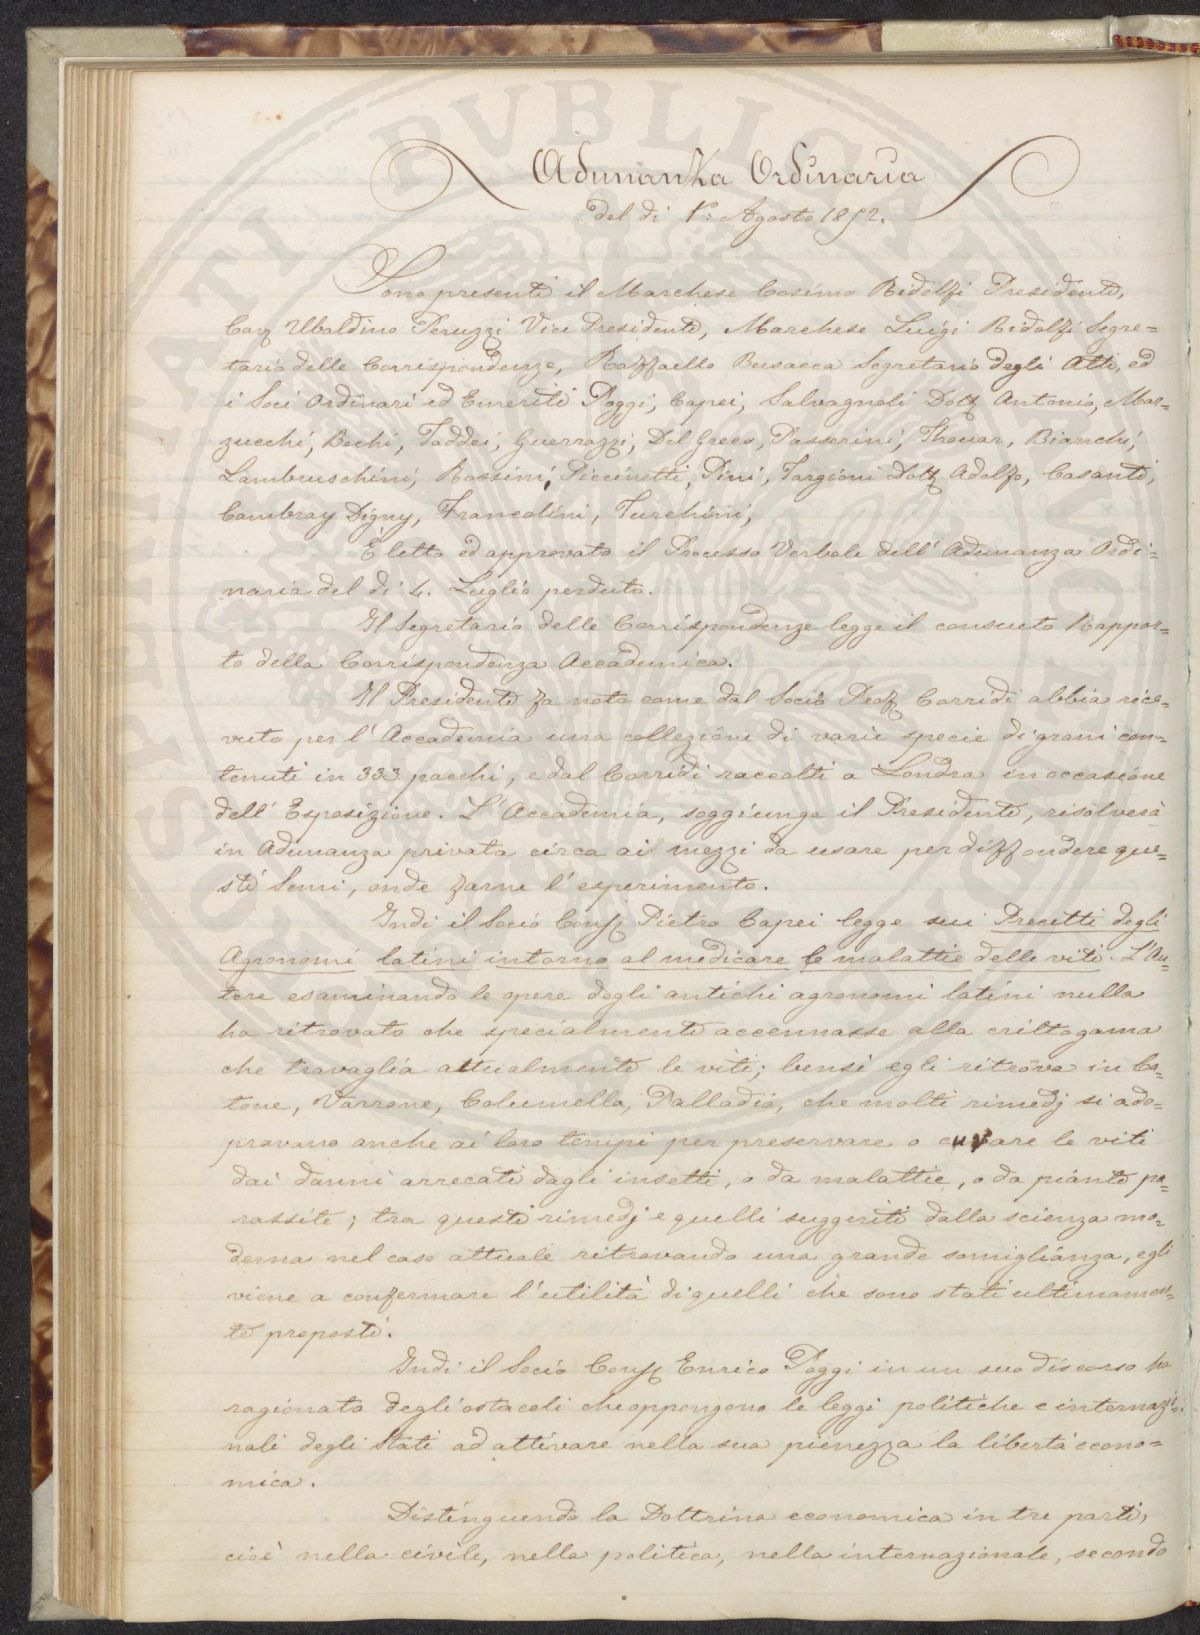 Adunanza Ordinaria
del dì 1º: Agosto 1852.
Sono presenti il Marchese Cosimo Ridolfi Presidente,
Cav Ubaldino Peruzzi Vice Presidente, Marchese Luigi Ridolfi Segre=
tario delle Corrispondenze, Raffaello Busacca Segretario degli Atti, ed
i Soci Ordinari ed Emeriti Poggi, Capei, Salvagnoli Dott Antonio, Mar=
zucchi, Bechi, Taddei, Guerrazzi, Del Greco, Passerini, Thouar, Bianchi,
Lambruschini, Rossini, Piccinetti, Pini, Targioni Dott Adolfo, Casanti,
Cambray Digny, Francolini, Turchini,
È letto ed approvato il Processo Verbale dell' Adunanza Ordi=
naria del dì 4. Luglio perduto.
Il Segretario delle Corrispondenze legge il consueto Rappor=
to della Corrispondenza Accademica.
Il Presidente fa noto come dal Socio Prof Corridi abbia rice=
vuto per l' Accademia una collezione di varie specie di grani con=
tenuti in 333 pacchi, e dal Corridi raccolti a Londra in occasione
dell' Esposizione. L' Accademia, soggiunge il Presidente, risolverà
in Adunanza privata circa ai mezzi da usare per diffondere que=
sti Semi, onde farne l' esperimento.
Indi il Socio Cons Pietro Capei legge sui Precetti degli
Agronomi latini intorno al medicare le malattie delle viti. L'Au=
tore esaminando le opere degli antichi agronomi latini nulla
ha ritrovato che specialmente accennasse alla crittogama
che travaglia attualmente le viti; bensì egli ritrova in Ca=
tone, Varrone, Columella, Palladio, che molti rimedj si ado=
pravano anche ai loro tempi per preservare o curare le viti
dai danni arrecati dagli insetti, o da malattie, o da piante pa=
rassite; tra questi rimedj e quelli suggeriti dalla scienza mo=
derna nel caso attuale ritrovando una grande somiglianza, egli
viene a confermare l' utilità di quelli che sono stati ultimamen=
te proposti.
Indi il Socio Cons Enrico Poggi in un suo discorso ha
ragionato degli ostacoli che oppongono le leggi politiche e internazio=
nali degli Stati ad attivare nella sua pienezza la libertà econo=
mica.
Distinguendo la Dottrina economica in tre parti,
cioè nella civile, nella politica, nella internazionale, secondo